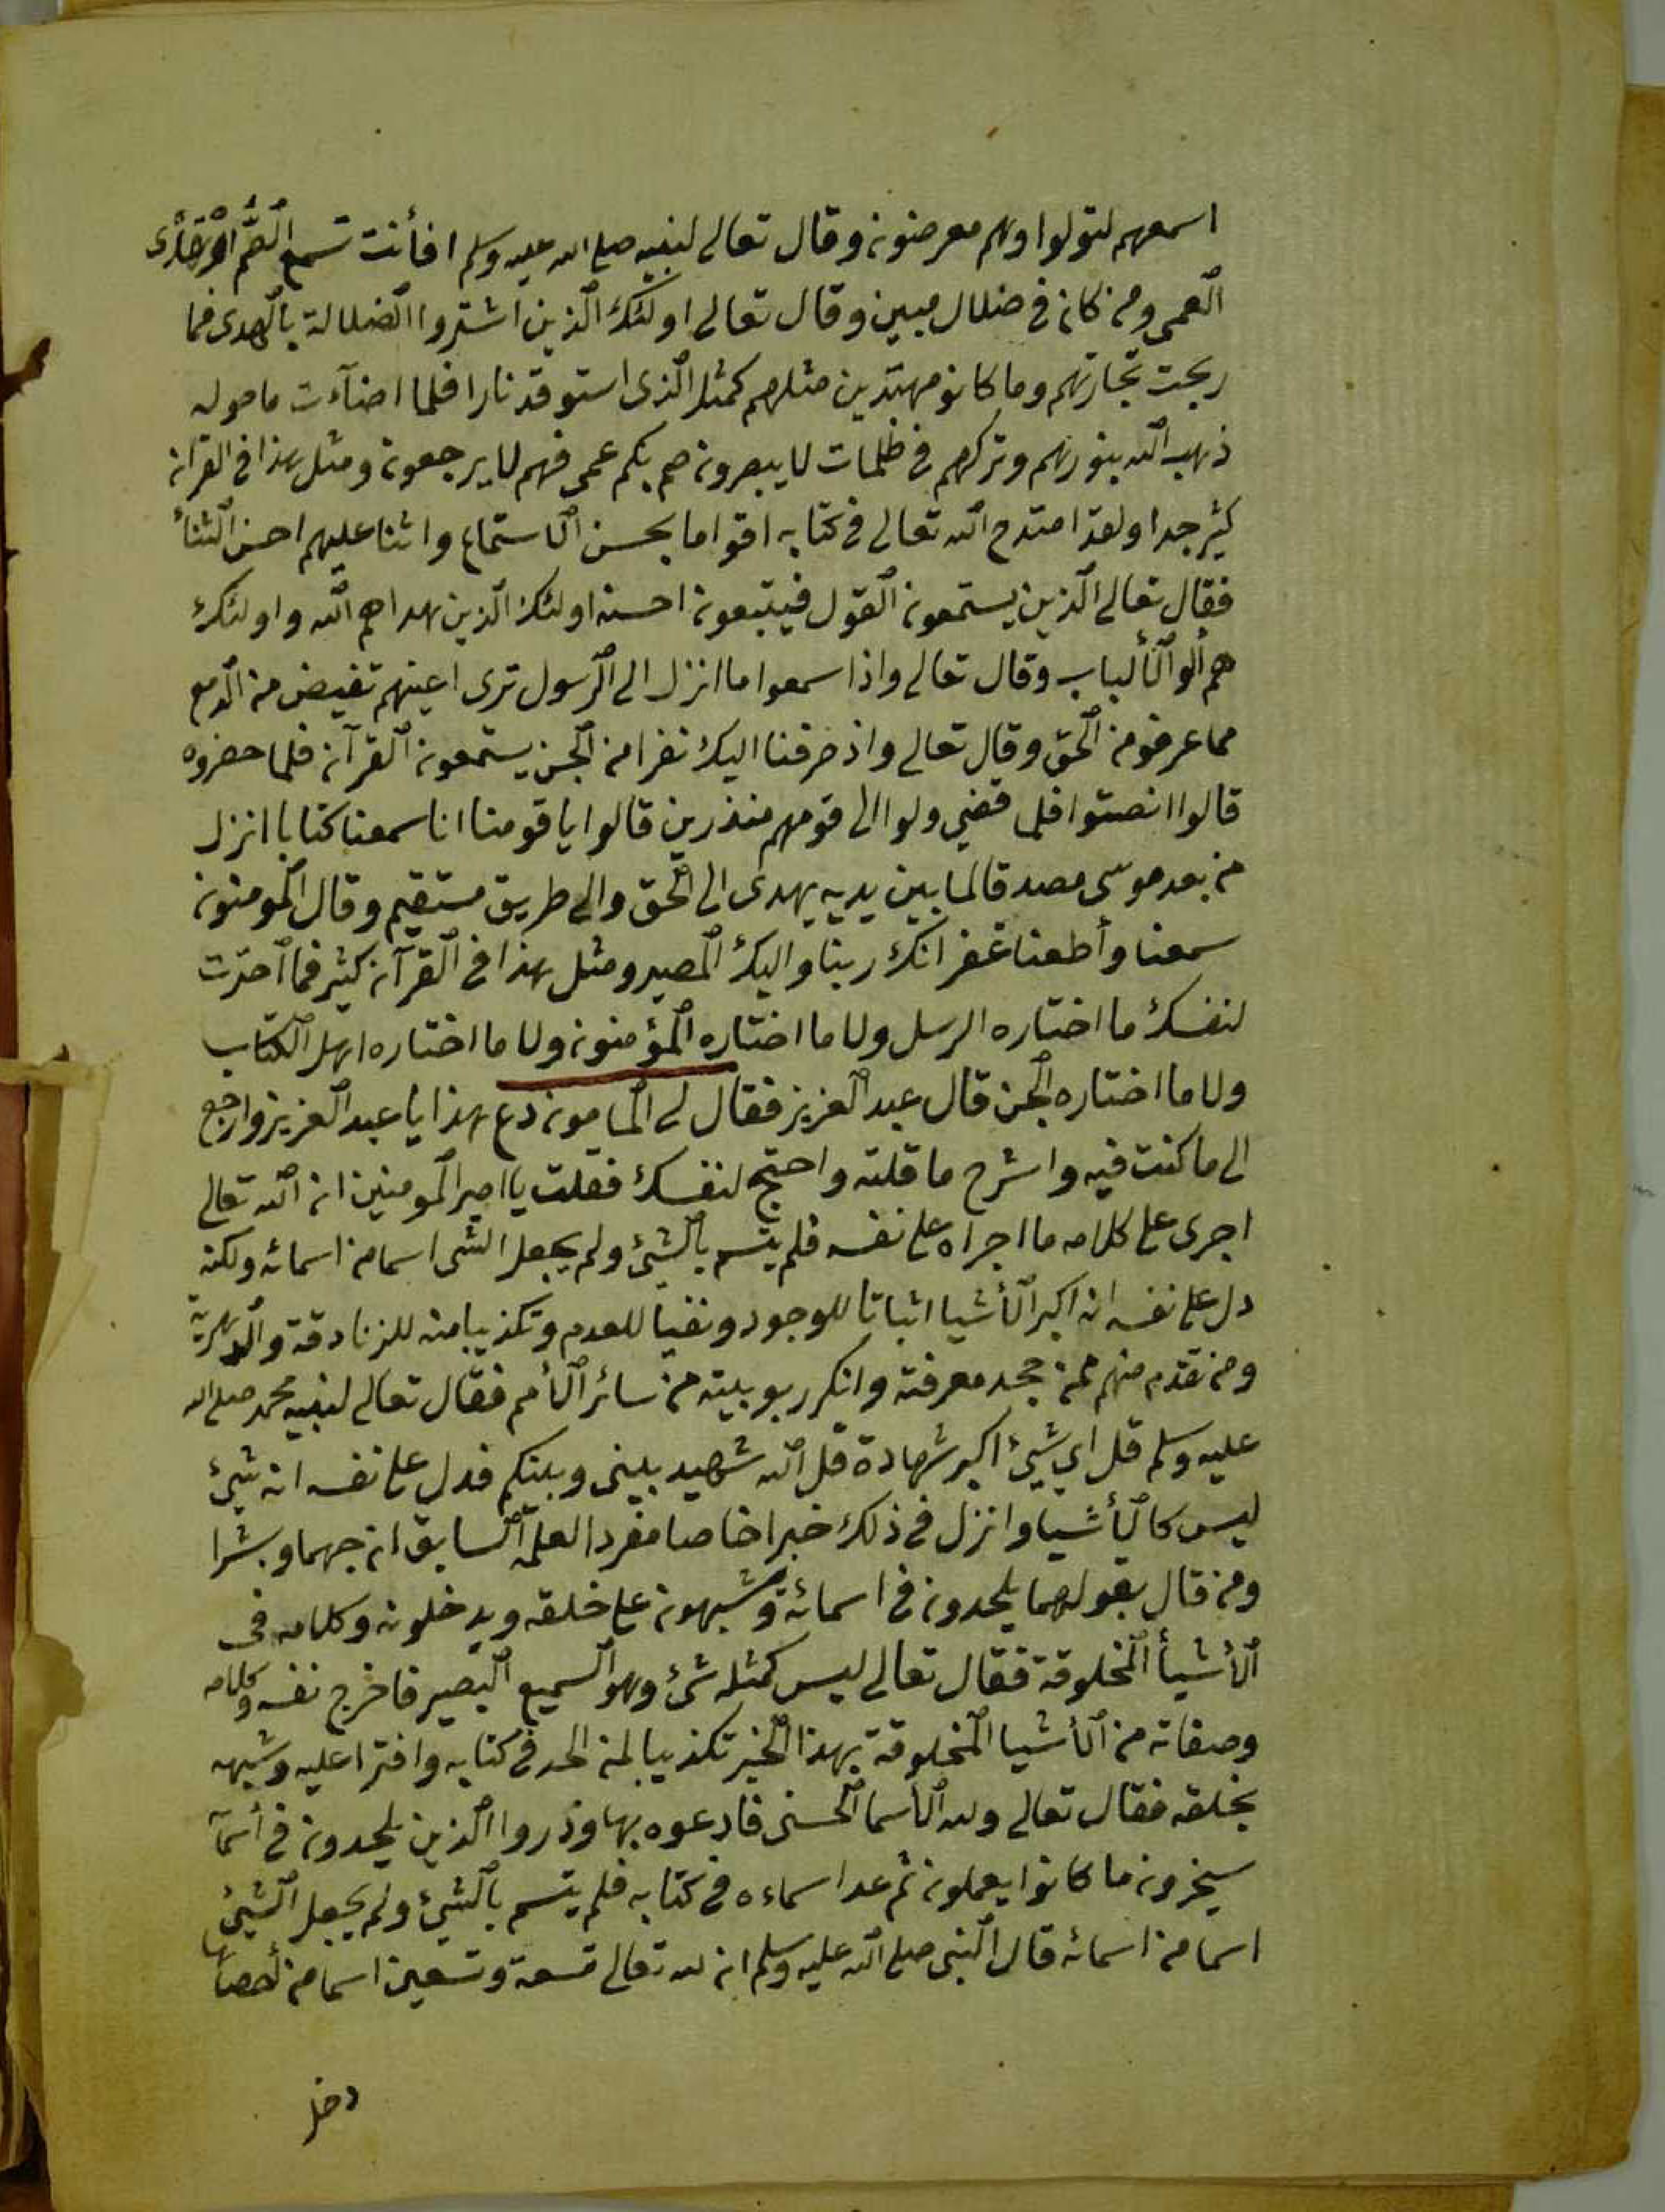 اسمعهم لتولوا وهم معرضون وقال تعالى لنبيه صلى الله عليه وسلم افأنت تسمع الصم او تهدى
العمى ومن كان فى ضلال مبين وقال تعالى اولئك الذين اشتروا الضلالة بالهدى فما
ربحت تجارتهم وما كانو مهتدين مثلهم كمثل الذى استوقد نارا فلما اضآءت ما حوله
ذهب الله بنورهم وتركهم فى ظلمات لا يبصرون صم بكم عمى فهم لا يرجعون ومثل هذا فى القران
كثير جدا ولقد امتدح الله تعالى فى كتابه اقواما بحسن الاستماع واثنا عليهم احسن الثنأ
فقال تعالى الذين يستمعون القول فيتبعون احسنه اولئك الذين هداهم الله واولئك
هم ألو الألباب وقال تعالى واذا سمعوا ما انزل الى الرسول ترى اعينهم تفيض من الدمع
مما عرفو من الحق وقال تعالى واذ صرفنا اليك نفرا من الجن يستمعون القرآن فلما حضروه
قالوا انصتوا فلما قضي ولوا الى قومهم منذرين قالوا يا قومنا انا سمعنا كتابا انزل
من بعد موسى مصدقا لما بين يديه يهدى الى الحق والى طريق مستقيم وقال المومنون
سمعنا وأطعنا غفرانك ربنا واليك المصير ومثل هذا فى القرآن كثير فما اخترت
لنفسك ما اختاره الرسل ولا ما اختاره المؤمنون ولا ما اختاره اهل الكتاب
ولا ما اختاره الجن قال عبد العزيز فقال لى المامون دع هذا يا عبد العزيز وارجع
الى ما كنت فيه واشرح ما قلته واحتج لنفسك فقلت يا امير المومنين ان الله تعالى
اجرى على كلامه ما اجراه على نفسه فلم يتسم بالشئ ولم يجعل الشى اسما من اسمائه ولكنه
دل على نفسه انه اكبر الأشيا اثباتا للوجود ونفيا للعدم وتكذيبا منه للزنادقة والدهرية
ومن تقدم منهم ممن جحد معرفته وانكر ربوبيته من سائر الأمم فقال تعالى لنبيه محمد صلى الله
عليه وسلم قل اي شيئ اكبر شهادة قل الله شهيد بينى وبينكم فدل على نفسه انه شيئ
ليس كالأشيا وانزل فى ذلك خبرا خاصا مفردا لعلمه السابق ان جهما وبشرا
ومن قال بقولهما يلحدون فى اسمائه ويشبهون على خلقه ويدخلونه وكلامه فى
الأشيأ المخلوقة فقال تعالى ليس كمثله شئ وهو السميع البصير فاخرج نفسه وكلامه
وصفاته من الأشيا المخلوقة بهذا الخبر تكذيبا لمن الحد فى كتابه وافترا عليه وشبهه
بخلقه فقال تعالى ولله الأسما الحسنى فادعوه بها وذروا الذين يلحدون فى أسمآ
سيجزون ما كانوا يعملون ثم عد اسماءه فى كتابه فلم يتسم بالشيئ ولم يجعل الشيئ
اسما من اسمائه قال النبى صلى الله عليه وسلم ان لله تعالى تسعة وتسعين اسما من أحصاها
دخل